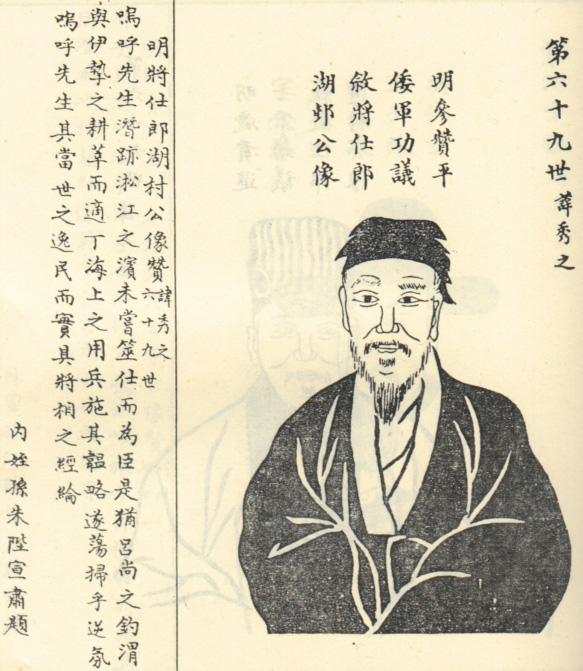 第六十九世 諱秀之
明參贊平
倭軍功議
敘將仕郎
湖邨公像
明將仕郎湖村公像贊 諱秀之 六十九世
嗚呼先生潛跡淞江之濱未嘗筮仕而為臣是猶呂尚之釣渭
與伊摯之耕莘而適丁海上之用兵施其韜略遂蕩掃乎逆氛
嗚呼先生其當世之逸民而實具將相之經綸
內姪孫朱陛宣肅題